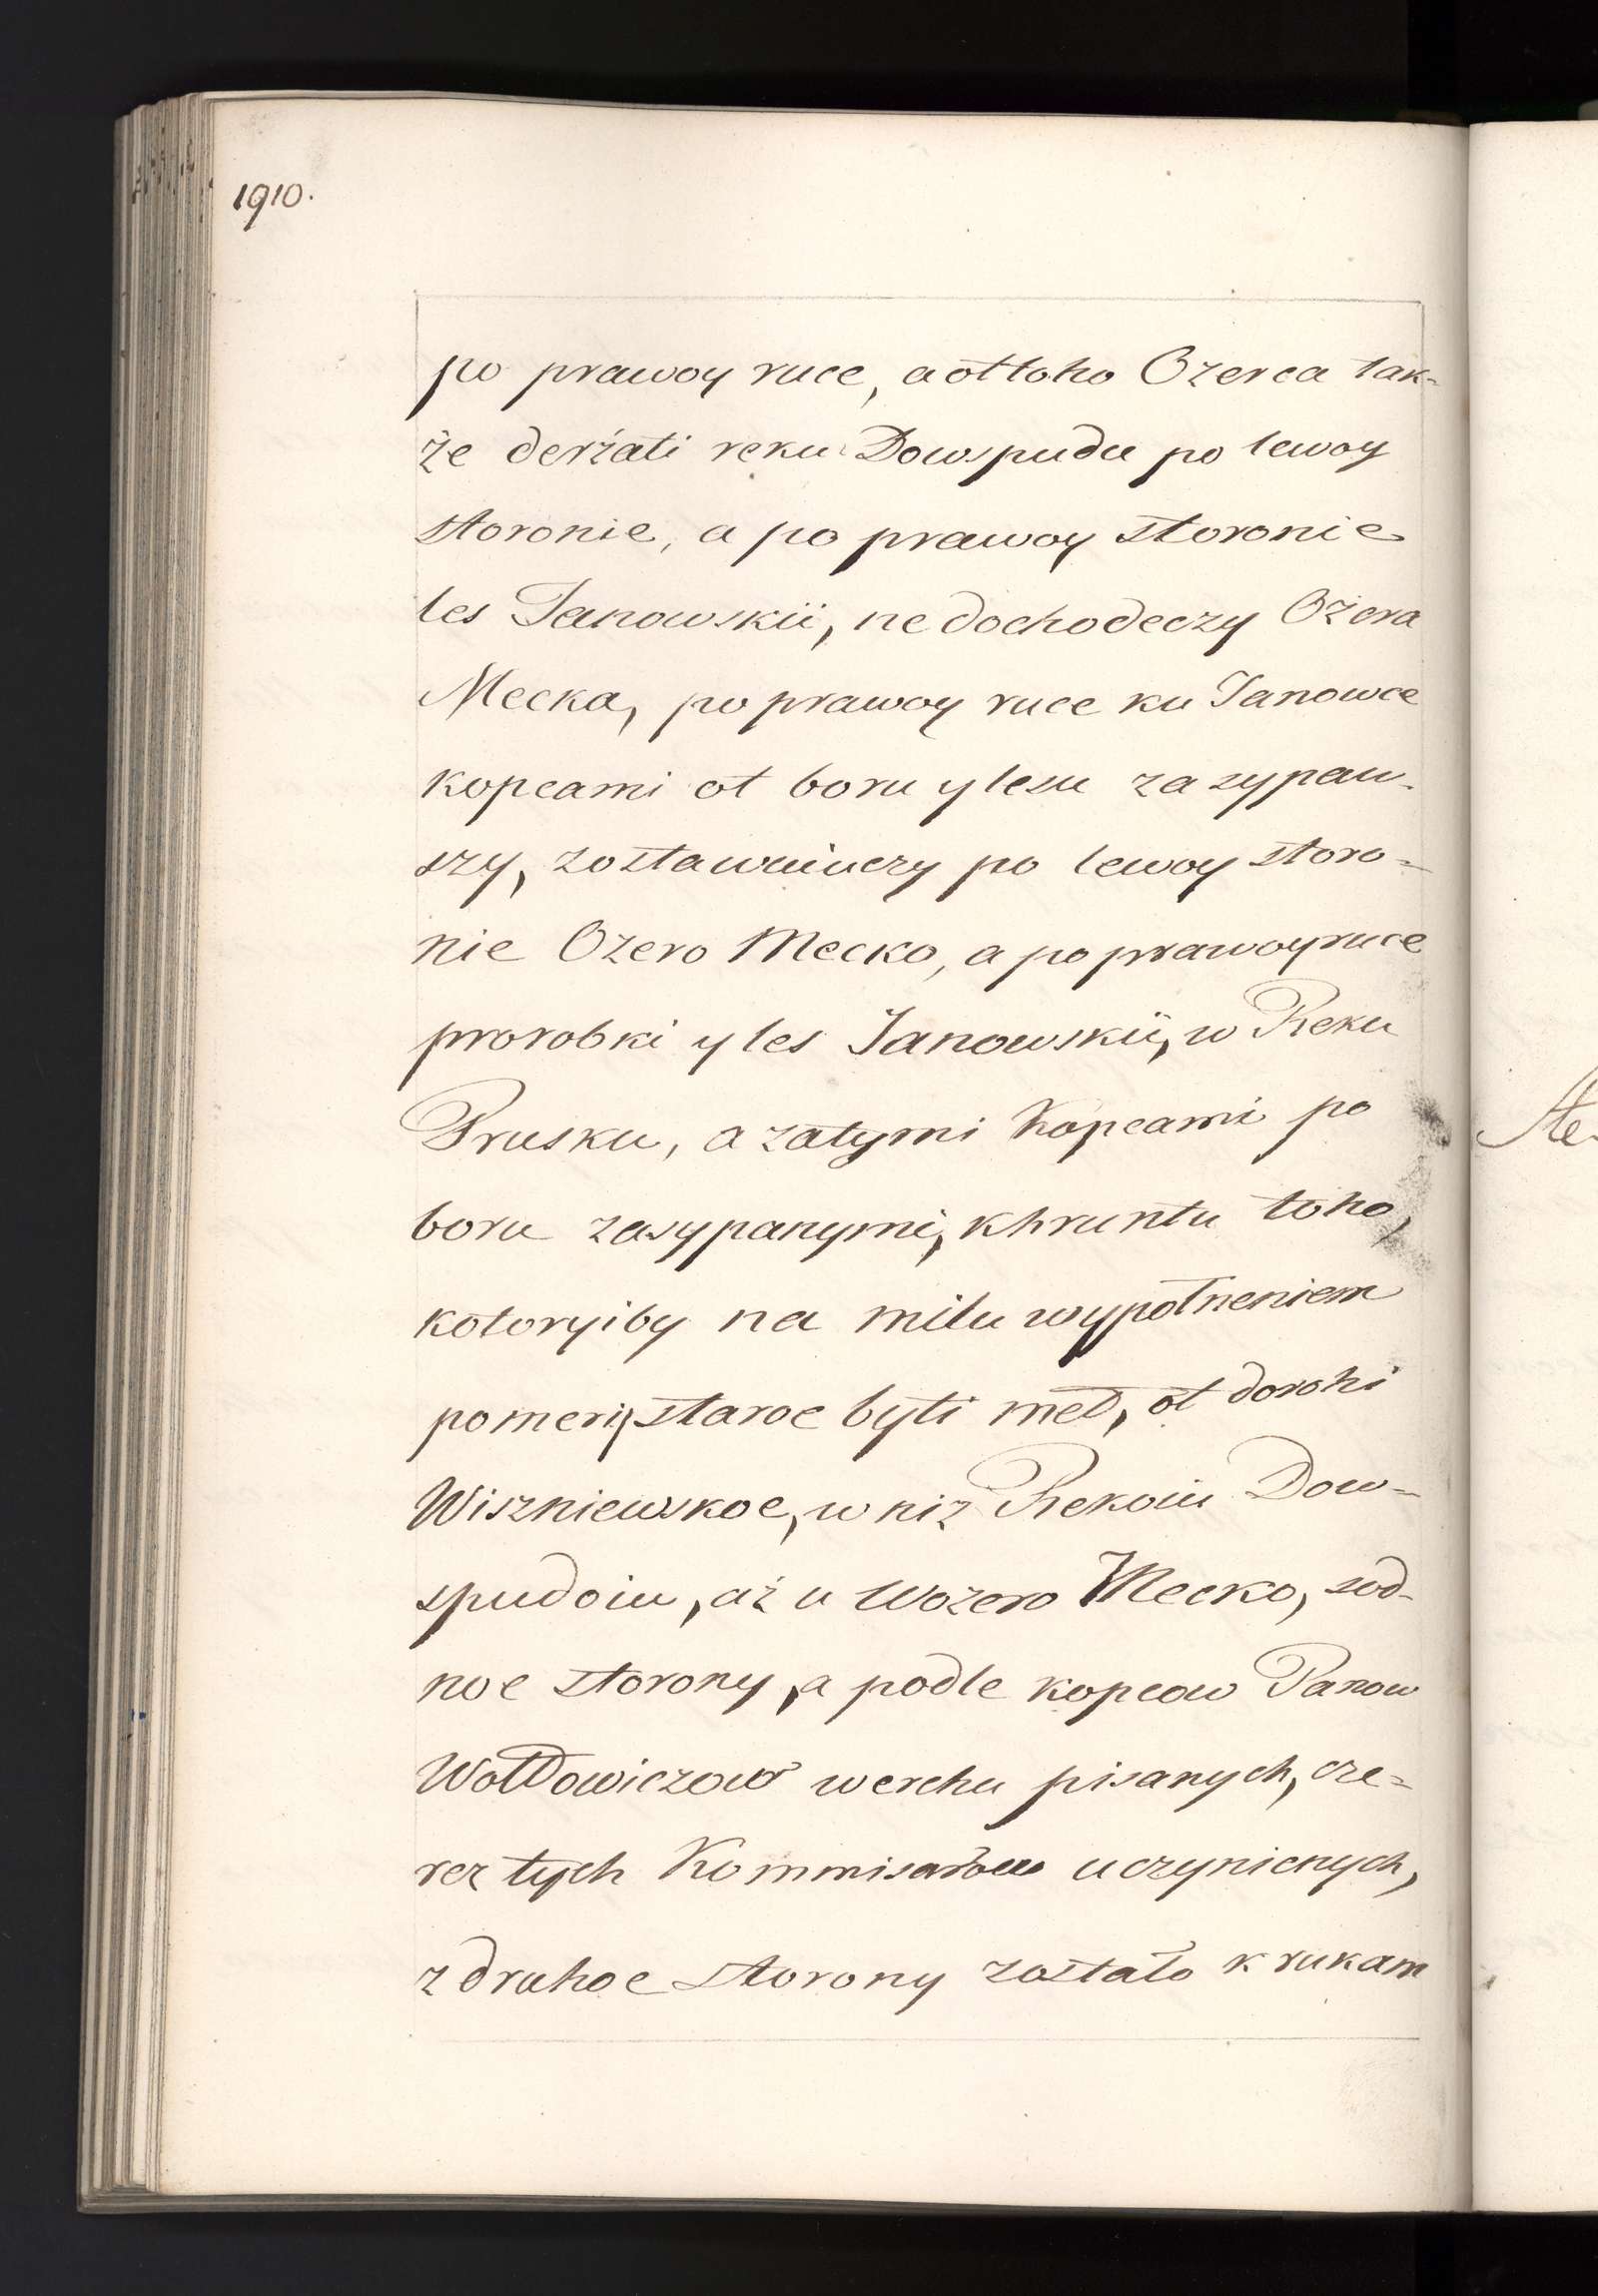 1910.
po prawoy ruce, a ottoho Ozerca tak-
że derżati reku Dowspudu po lewoy
storonie, a po prawoy storonie
les Janowskii, ne dochodeczy Ożera
Mecka, po prawoy ruce ku Janowce
kopcami ot boru y lesu zasypaw-
szy, zostawuiuczy po lewoy storo-
nie Ozero Mecko, a po prawoy ruce
prorobki y les Janowskii, w Reku
Prusku, a zatymi Kopcami po
boru zasypanymi, khruntu toho,
kotoryiby na milu wypołneniem
pomery staroe byti meł, ot dorohi
Wiszniewskoe, w niz Rekoiu Dow-
spudoiu, aż u Wozero Mecko, zod-
noe storony, a podle kopcow Panow
Wołłowiczow werchu pisanych, cze-
rez tych Kommisarow uczynienych,
z druhoe storony zostało k rukam
Ste